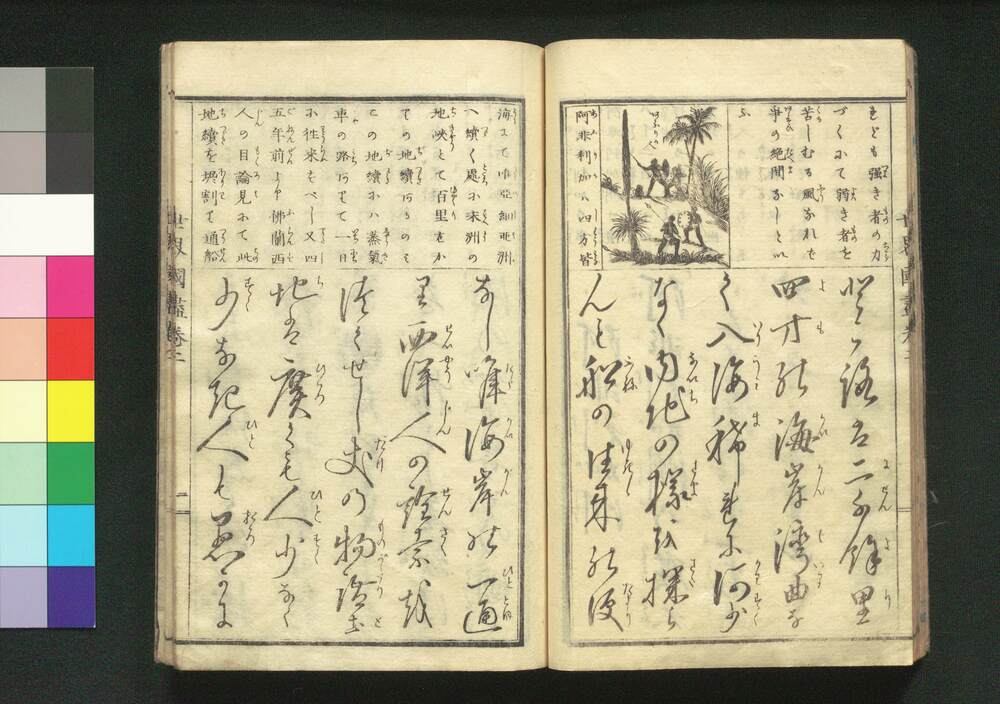 れども強き者の力
づくにて弱き者を
苦しむる風なれバ
争の絶間なしとい
ふ
阿非利加ハ四方皆
路は二千餘里
四方の海岸湾曲な
く入海稀に河少
なく内地の様を探ら
んも船の往来の便
世界國盡卷二
海にて巾亞細亜洲
へ續く處に
地峡とて百里
での地續あるのミ
この地續にハ蒸氣
車の路ありて一日
に往来すべし又四
五年前より佛蘭西
人の目論見にて此
地續を堀割て通船
なし唯海岸の一通
り西洋人の詮索
せし丈の物語
地は廣くも人少なく
少なき人も愚にて
世界國盡卷二
二